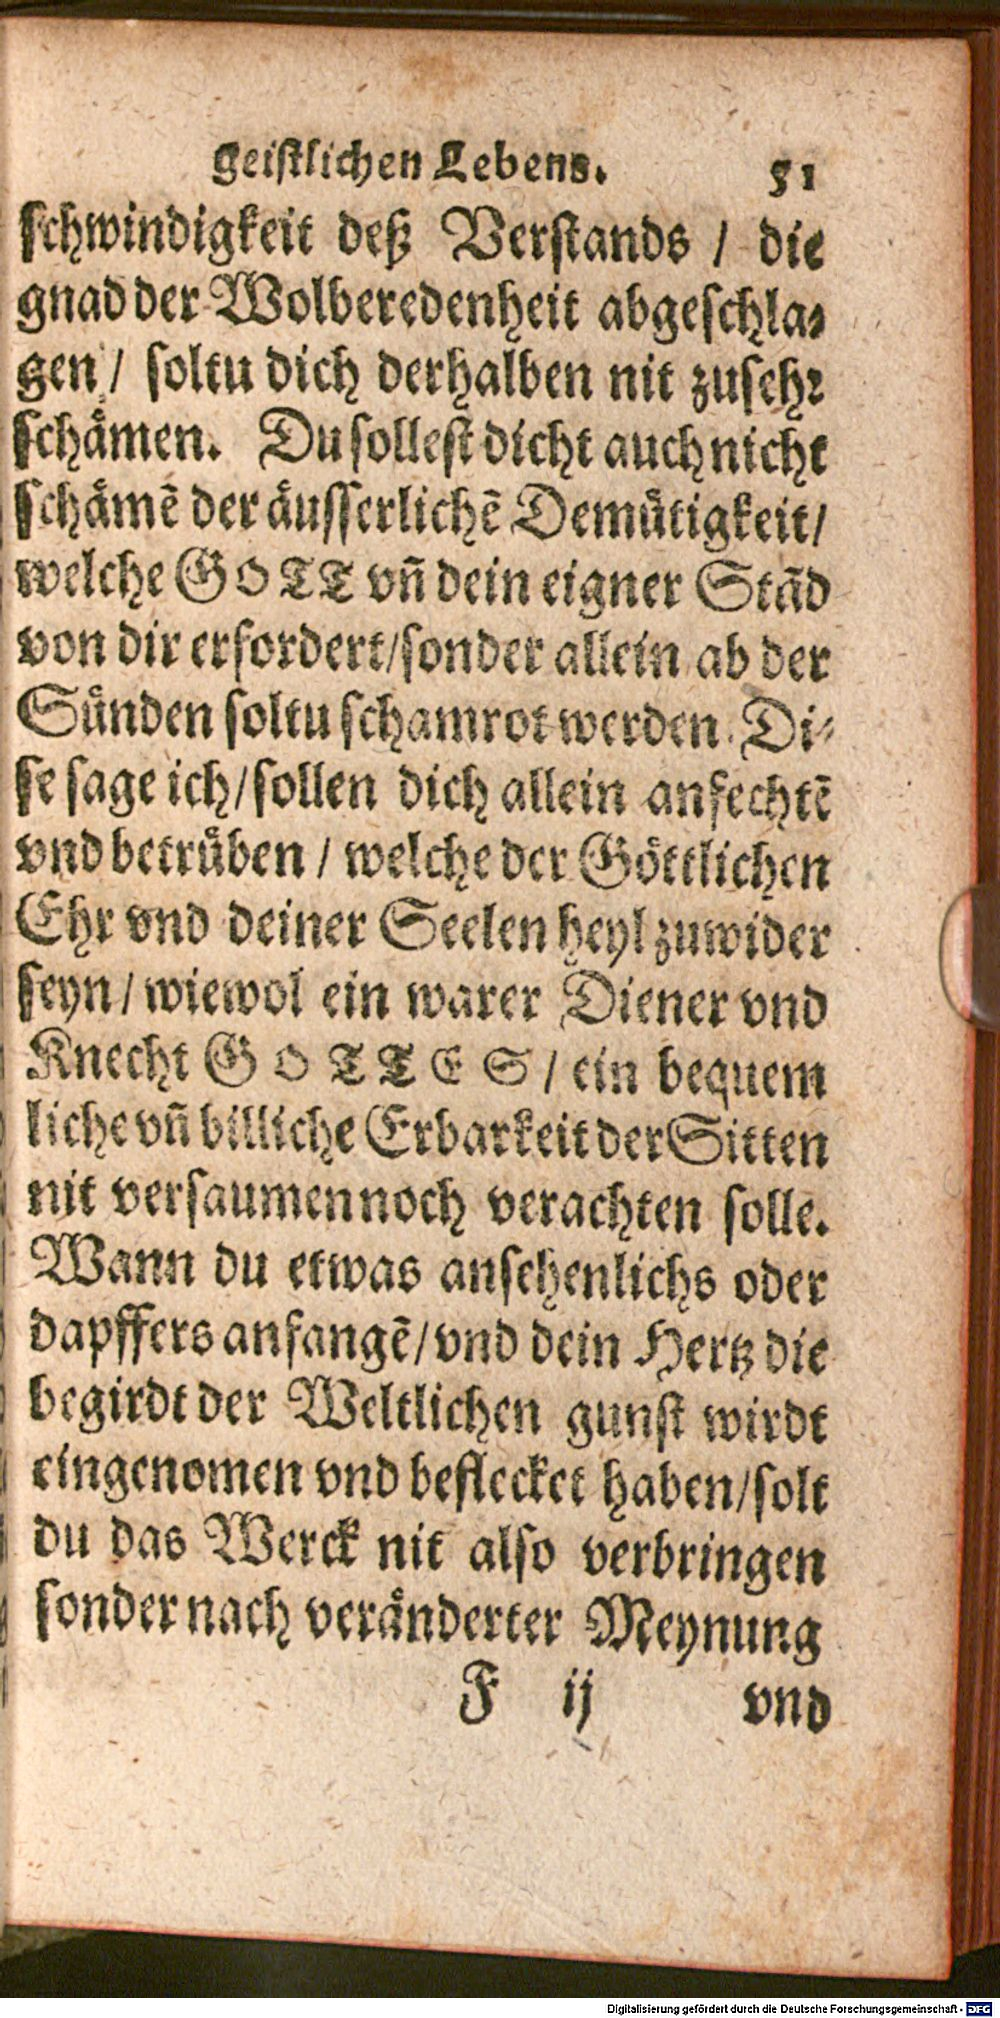 geistlichen Lebens. 51
schwindigkeit deß Verstands / die
gnad der Wolberedenheit abgeschla-
gen / soltu dich derhalben nit zusehr
schämen. Du sollest dicht auch nicht
schämẽ der äusserlichẽ Demütigkeit/
welche GOTT vñ dein eigner Stãd
von dir erfordert/sonder allein ab der
Sünden soltu schamrot werden. Di-
se sage ich/sollen dich allein anfechtẽ
vnd betrüben / welche der Göttlichen
Ehr vnd deiner Seelen heyl zuwider
seyn / wiewol ein warer Diener vnd
Knecht GOTTES / ein bequem
liche vñ billiche Erbarkeit der Sitten
nit versaumen noch verachten solle.
Wann du etwas ansehenlichs oder
dapffers anfangẽ/vnd dein Hertz die
begirdt der Weltlichen gunst wirdt
eingenomen vnd beflecket haben/solt
du das Werck nit also verbringen
sonder nach veränderter Meynung
F ij vnd
Digitalisierung gefördert durch die Deutsche Forschungsgemeinschaft - DFG